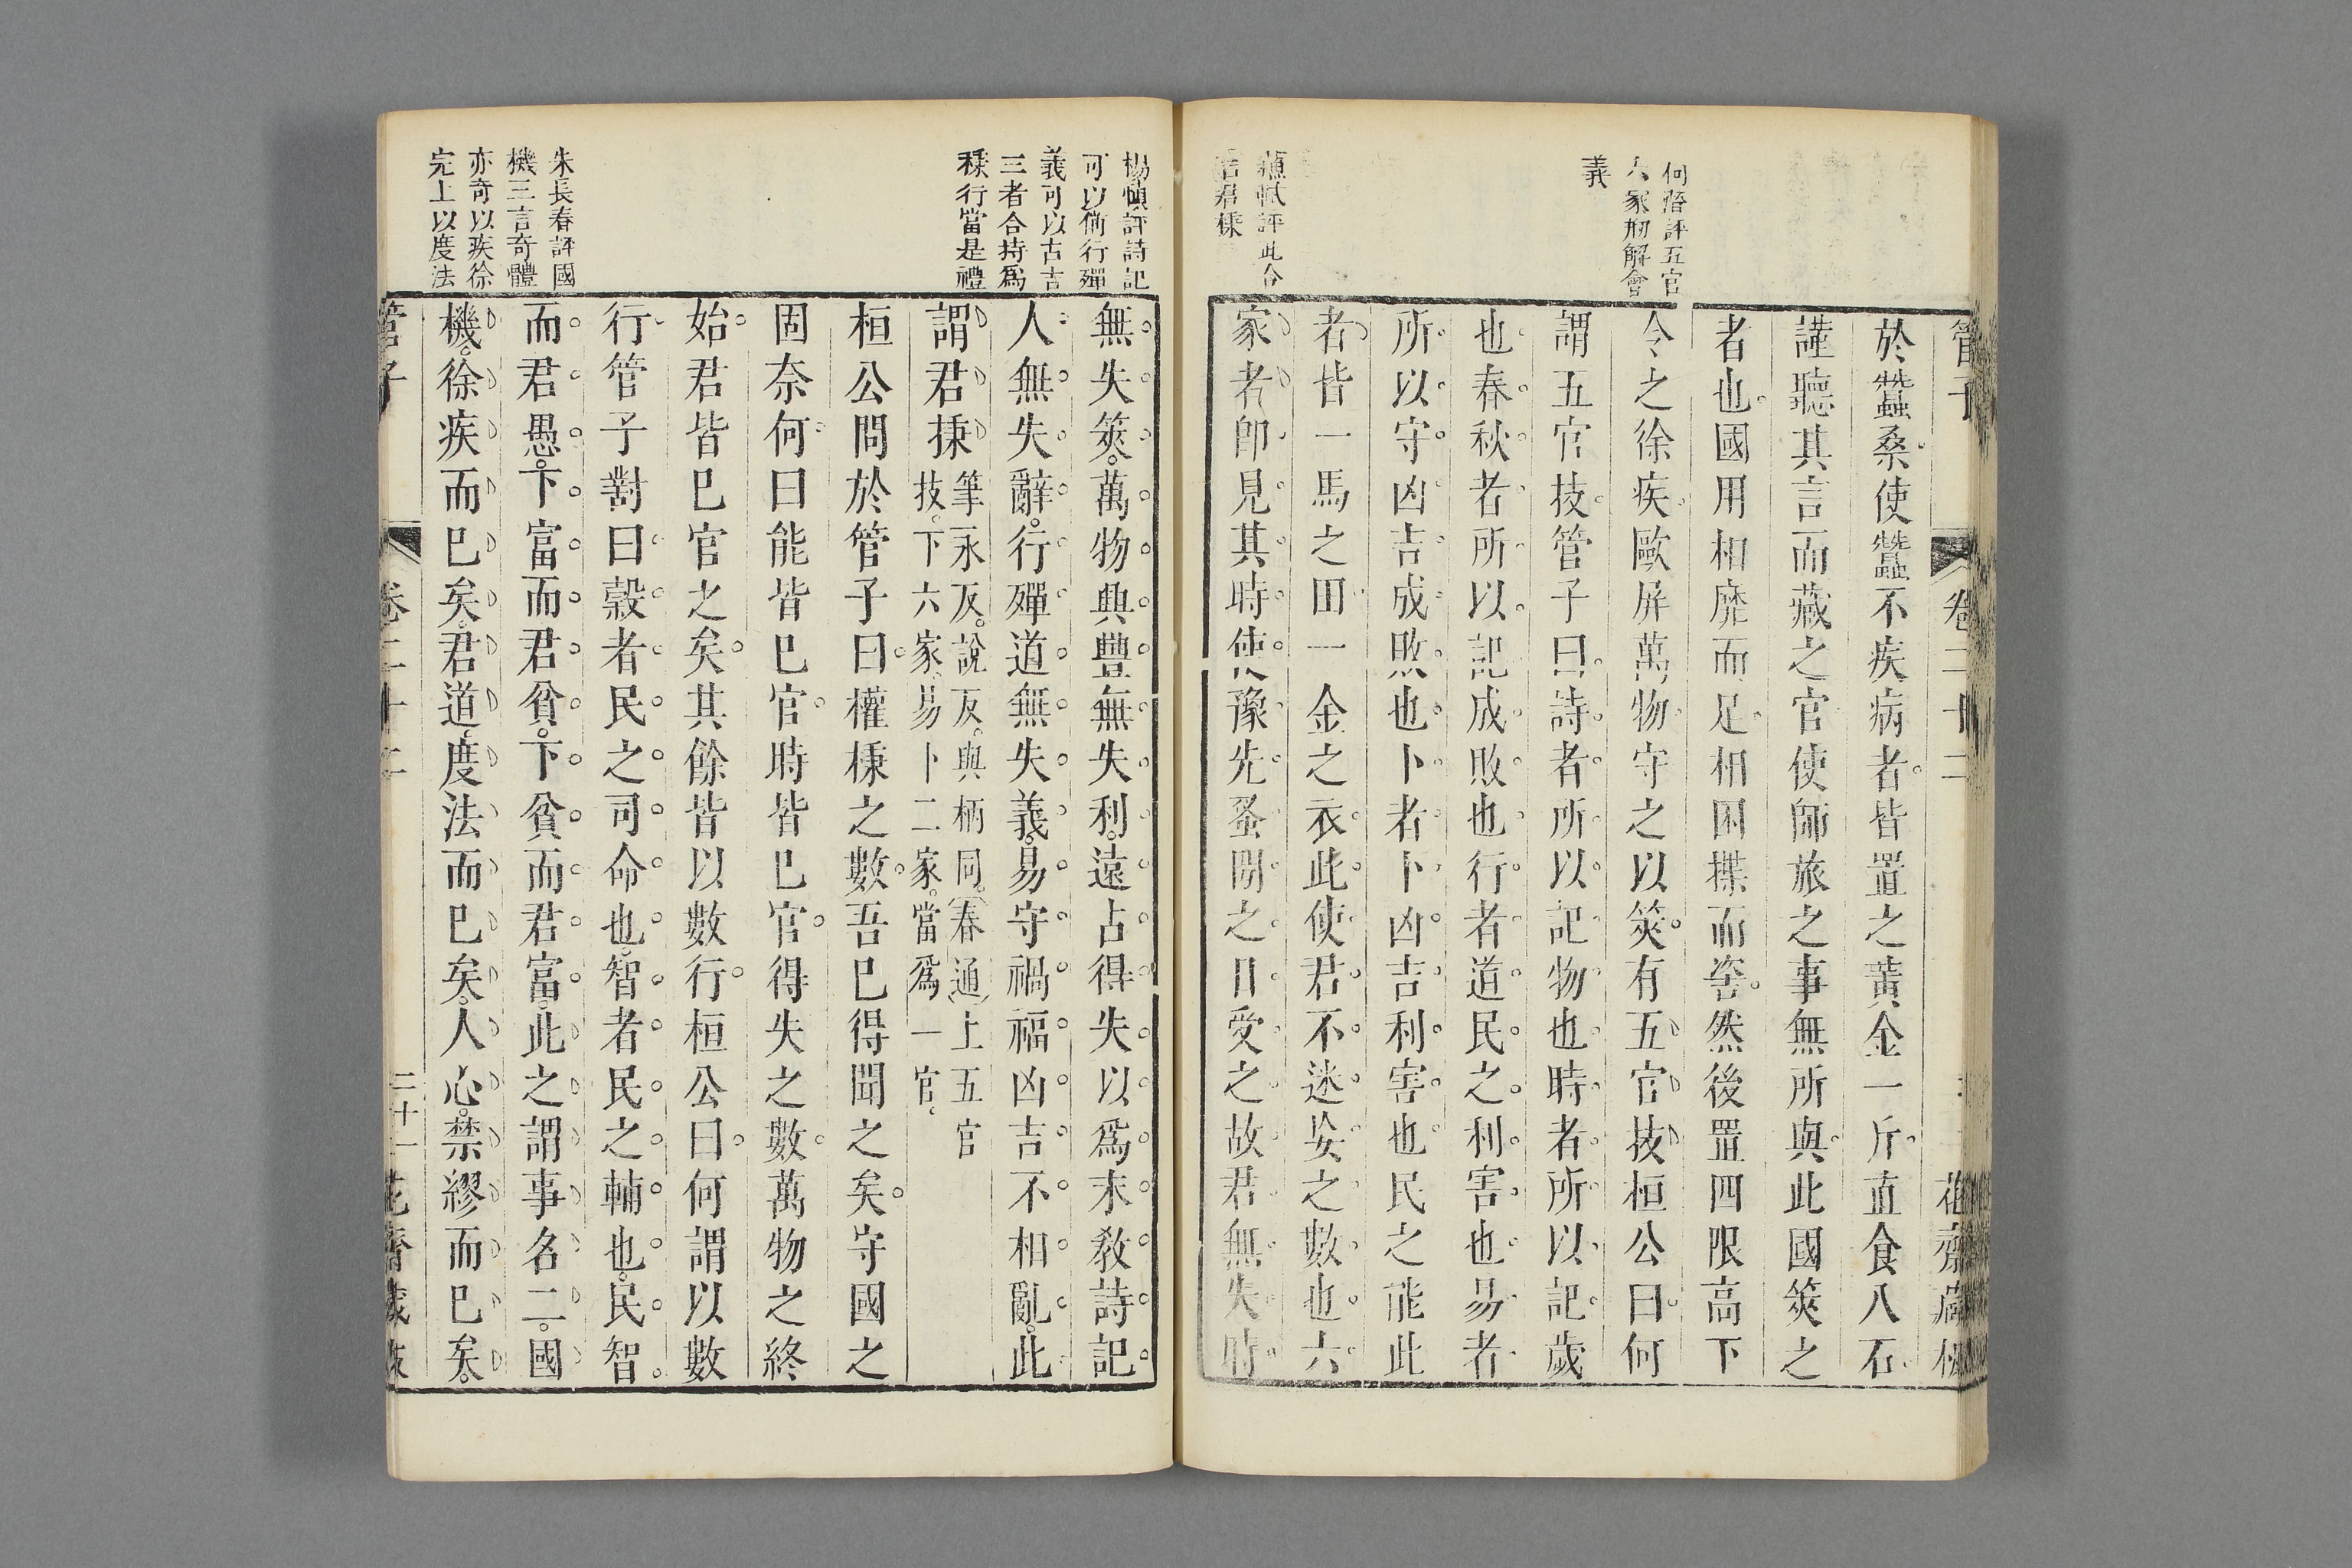 何 評五官
六家 解會
義
管子
卷二十二
花齋藏板
於蠶桑使蠶不疾病者皆置之黃金一斤直食八石
謹聽其言而藏之官使師旅之事無所與此國筴之
者也國用相靡而足相困揲而㳷然後置四限高下
令之徐疾敺屏萬物守之以筴有五官技桓公曰何
謂五官技管子曰詩者所以記物也時者所以記歲
也春秋者所以記成敗也行者道民之利害也易者
所以守凶吉成敗也卜者卜凶吉利害也民之能此
者皆一馬之田一金之衣此使君不迷妄之數也六
家者卽見其時使豫先蚤閒之日受之故君無失時
評此合
君 
楊慎評詩記
可以 行殫
義可以占吉
三者合持爲
 行當是禮
無失筴萬物興豐無失利遠占得失以爲末敎詩記
人無失辭行殫道無失義易守禍福凶吉不相亂此
謂君棅筆永反說反與柄同春通上五官
技下六家易卜二家當爲一官
桓公問於管子曰權棅之數吾已得聞之矣守國之
固奈何曰能皆已官時皆已官得失之數萬物之終
始君皆已官之矣其餘皆以數行桓公曰何謂以數
行管子對曰穀者民之司命也智者民之輔也民智
而君愚下富而君貧下貧而君富此之謂事名二國
機徐疾而已矣君道度法而已矣人心禁繆而已矣
朱長春評國
機三言奇體
亦奇以疾徐
完上以度法
管子
卷二十二
二十一
花齋藏板